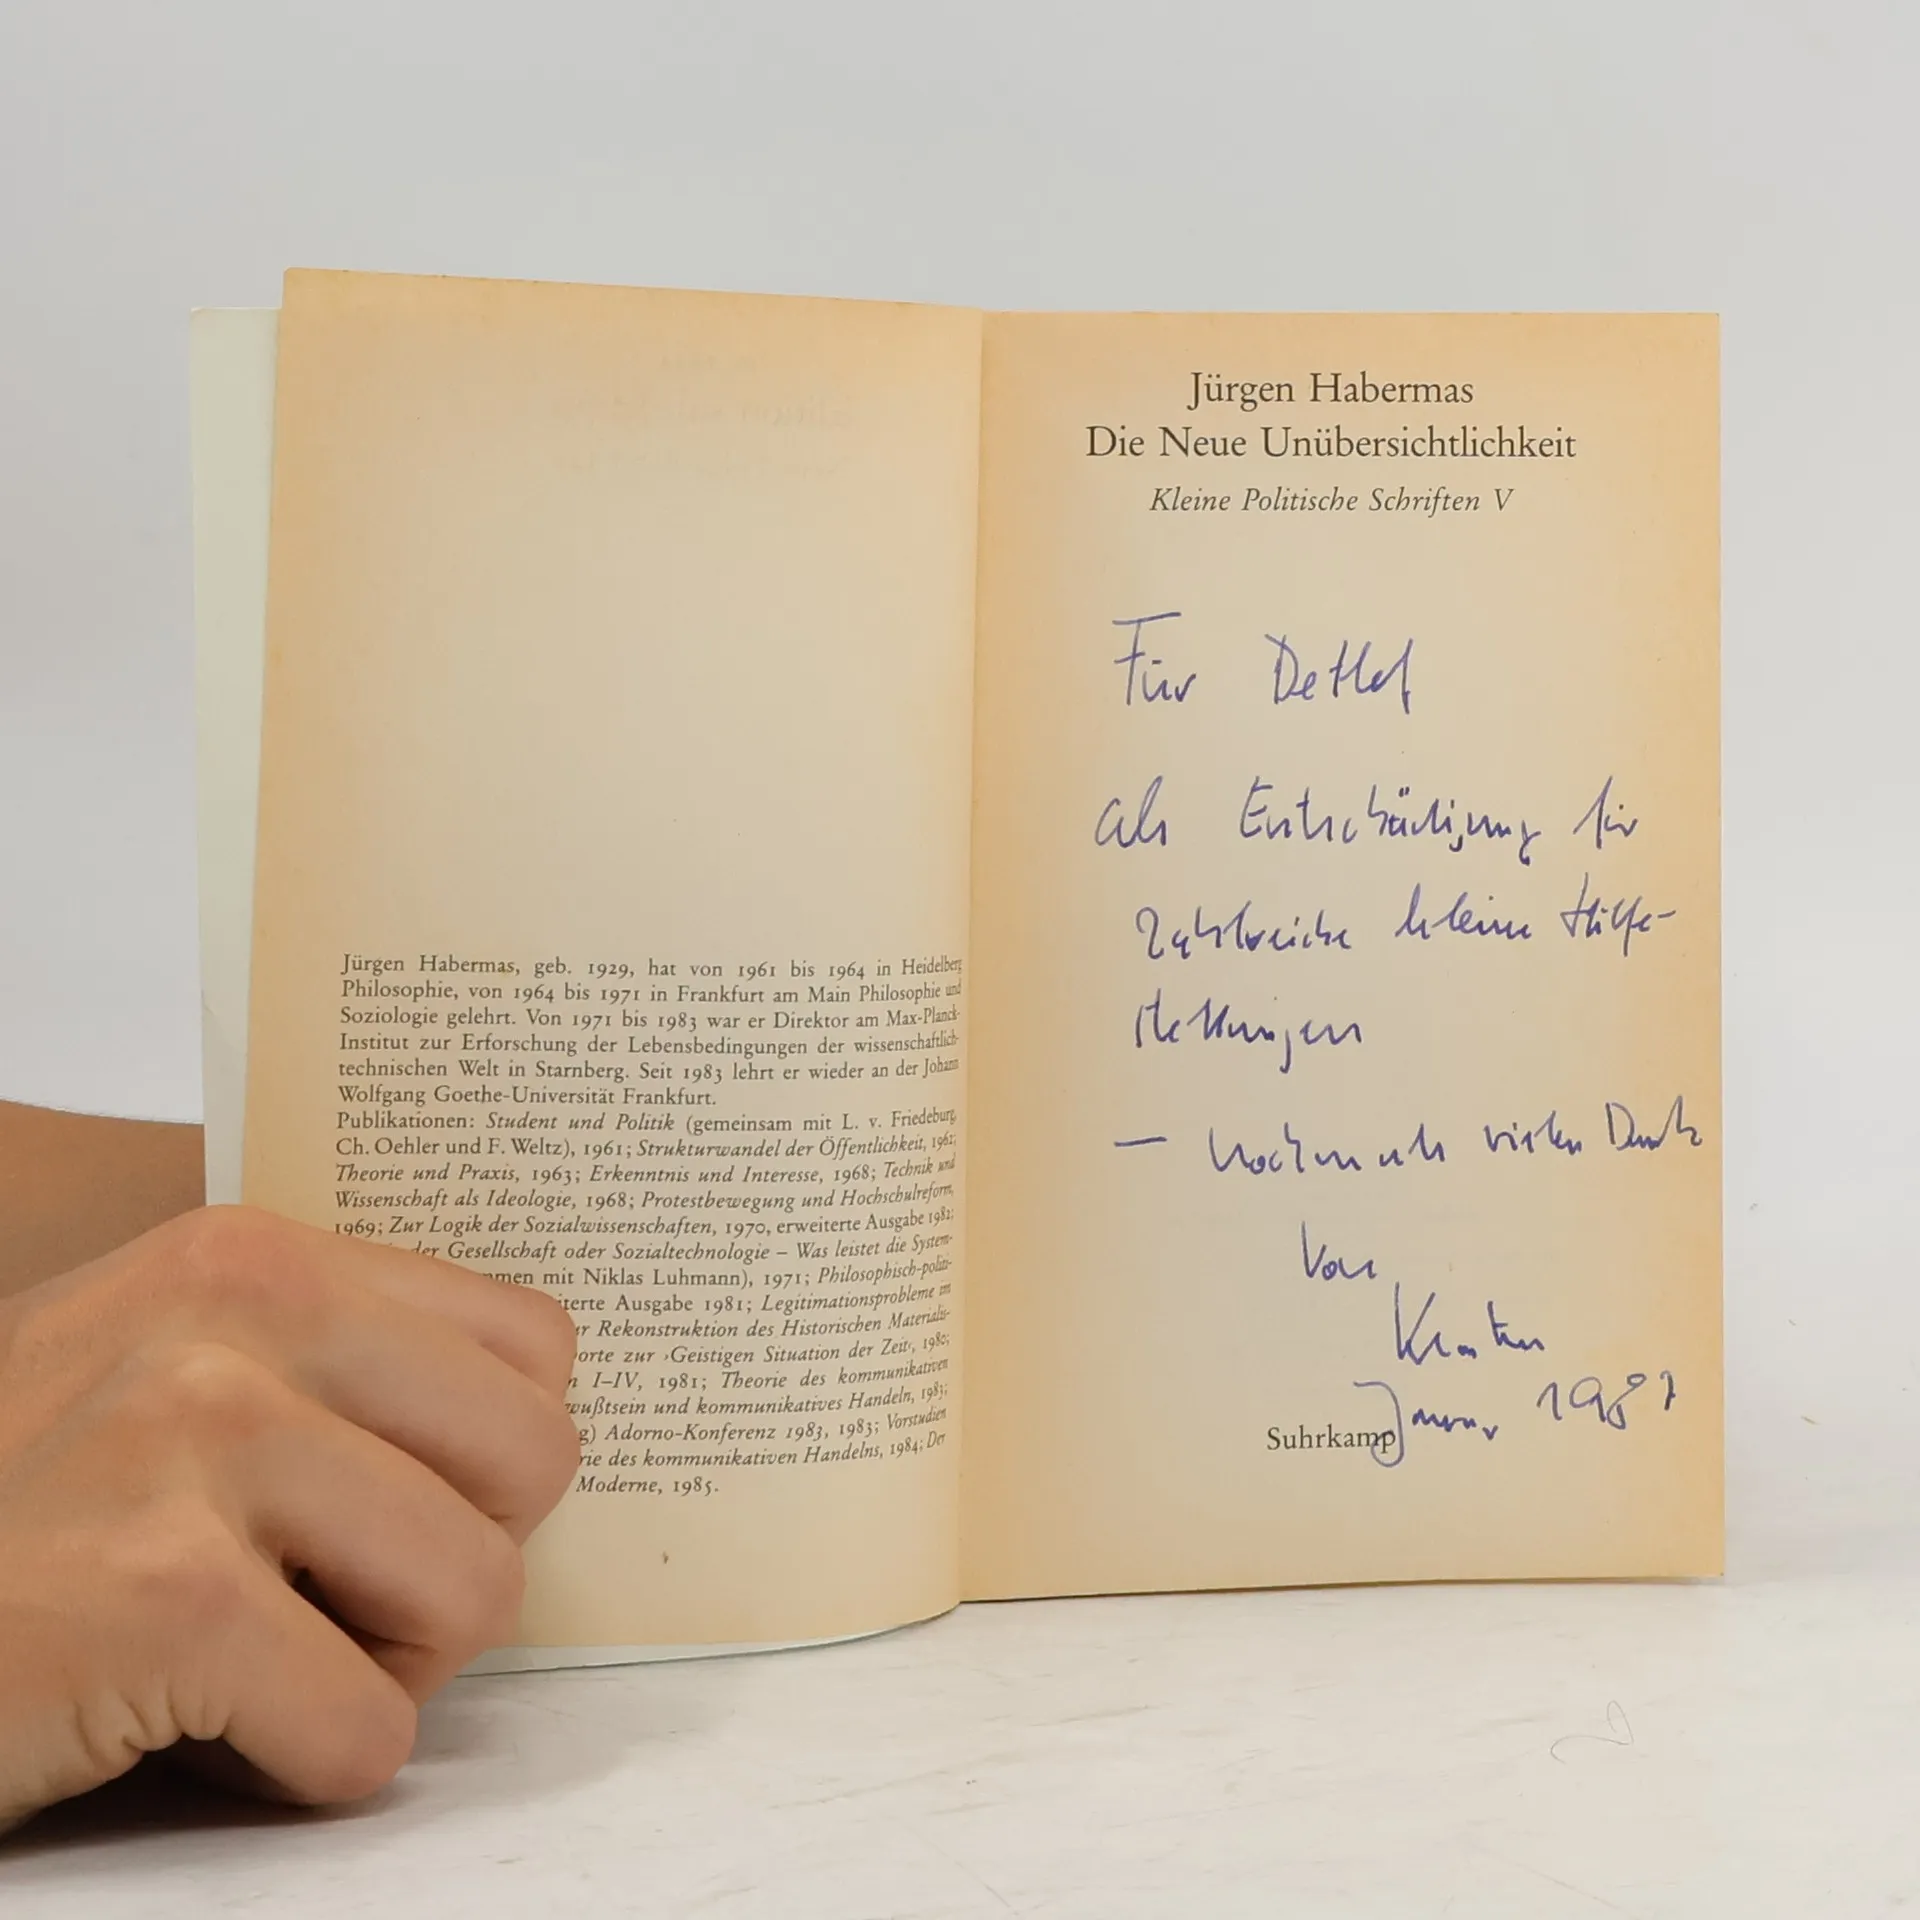 Jürgen Habermas, geb. 1929, hat von 1961 bis 1964 in Heidelberg
Philosophie, von 1964 bis 1971 in Frankfurt am Main Philosophie und
Soziologie gelehrt. Von 1971 bis 1983 war er Direktor am Max-Planck-
Institut zur Erforschung der Lebensbedingungen der wissenschaftlich-
technischen Welt in Starnberg. Seit 1983 lehrt er wieder an der Johann
Wolfgang Goethe-Universität Frankfurt.
Publikationen: Student und Politik (gemeinsam mit L. v. Friedeburg,
Ch. Oehler und F. Weltz), 1961; Strukturwandel der Öffentlichkeit, 1962;
Theorie und Praxis, 1963; Erkenntnis und Interesse, 1968; Technik und
Wissenschaft als Ideologie, 1968; Protestbewegung und Hochschulreform,
1969; Zur Logik der Sozialwissenschaften, 1970, erweiterte Ausgabe 1982;
der Gesellschaft oder Sozialtechnologie – Was leistet die System-
mmen mit Niklas Luhmann), 1971; Philosophisch-politi-
iterte Ausgabe 1981; Legitimationsprobleme im
ur Rekonstruktion des Historischen Materialis-
orte zur ›Geistigen Situation der Zeit‹, 1980;
n I–IV, 1981; Theorie des kommunikativen
wußtsein und kommunikatives Handeln, 1983;
g) Adorno-Konferenz 1983, 1983; Vorstudien
rie des kommunikativen Handelns, 1984; Der
Moderne, 1985.
Jürgen Habermas
Die Neue Unübersichtlichkeit
Kleine Politische Schriften V
Für Detlef
als Entschädigung für
zahlreiche kleine Hilfe-
stellungen
— nochmals vielen Dank
Von
Januar 1987
Suhrkamp